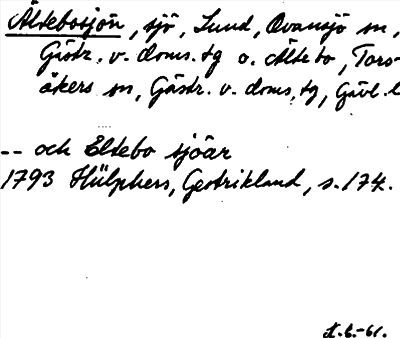 Ältebosjön, sjö, Lund, Ovansjö sn,
Gästr. v. doms.tg o. Ältebo, Tors-
åkers sn, Gästr. v. doms.tg, Gävl. l
-- och Eltebo sjöär
1793 Hülphers, Gestrikland, s. 174.
.6.-61.